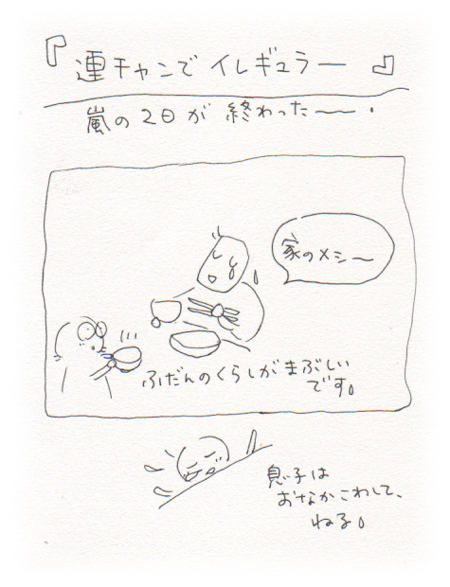 『連チャンで イレギュラー 』
嵐の2日が 終わった〜〜.
家のメシ〜
ふだんのくらしがまぶしい
です。
息子は
おなかこわして、
ねる。